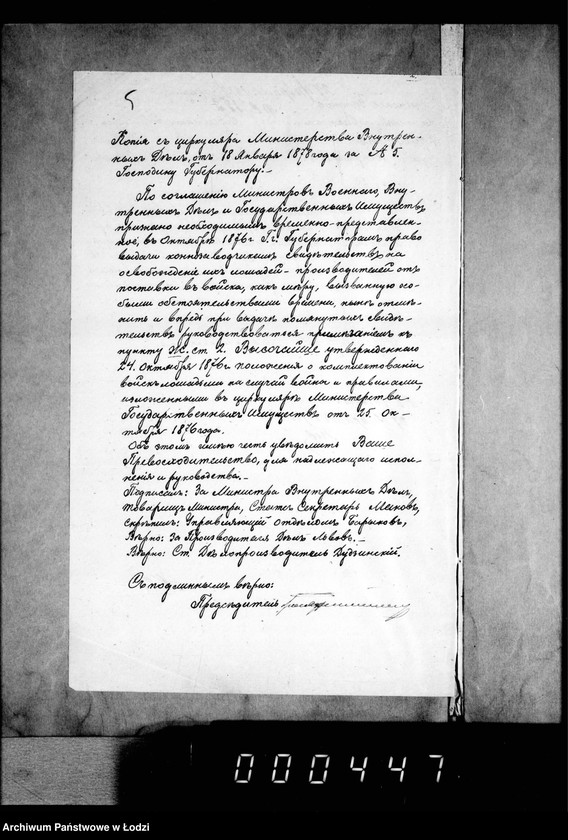 5
Копія съ циркуляра Министерства Внутрен-
ныхъ Дѣлъ, отъ 18 Января 1878 года за № 5.
Господину Губернатору.-
По соглашенію Министровъ Военнаго, Вну-
тренныхъ Дѣлъ и Государственныхъ Имуществъ
признано необходимымъ временно-представлен-
ное, въ Октябрѣ 1876 г. Г.г. Губернаторамъ право
выдачи коннозаводчикамъ свидѣтельствъ на
освобожденіе ихъ лошадей-производителей отъ
поставки въ войска, какъ мѣру, вызванную осо-
быми обстоятельствами времени, нынѣ отмѣ-
нить и впредь при выдачѣ помянутыхъ свидѣ-
тельствъ руководствоваться примѣчаніемъ къ
пункту ж. ст. 2. Высочайше утвержденнаго
24. Октября 1876 г. положенія о комплектованіи
войскъ лошадьми на случай войны и правилами,
изложенными въ циркулярѣ Министерства
Государственныхъ Имуществъ отъ 25. Ок-
тября 1876 года.
Объ этомъ имѣю честь увѣдомить Ваше
Превосходительство, для надлежащаго испол-
ненія и руководства.-
Подписалъ: За Министра Внутренныхъ Дѣлъ,
Товарищъ Министра, Статсъ Секретарь Маковъ,
скрѣпилъ: Управляющій отдѣломъ Барыковъ,
Вѣрно: За Производителя Дѣлъ Львовъ.-
Вѣрно: Ст. Дѣлопроизводитель Дудзинскій.
Съ подлиннымъ вѣрно:
Предсѣдатель
000447
Archiwum Państwowe w Łodzi